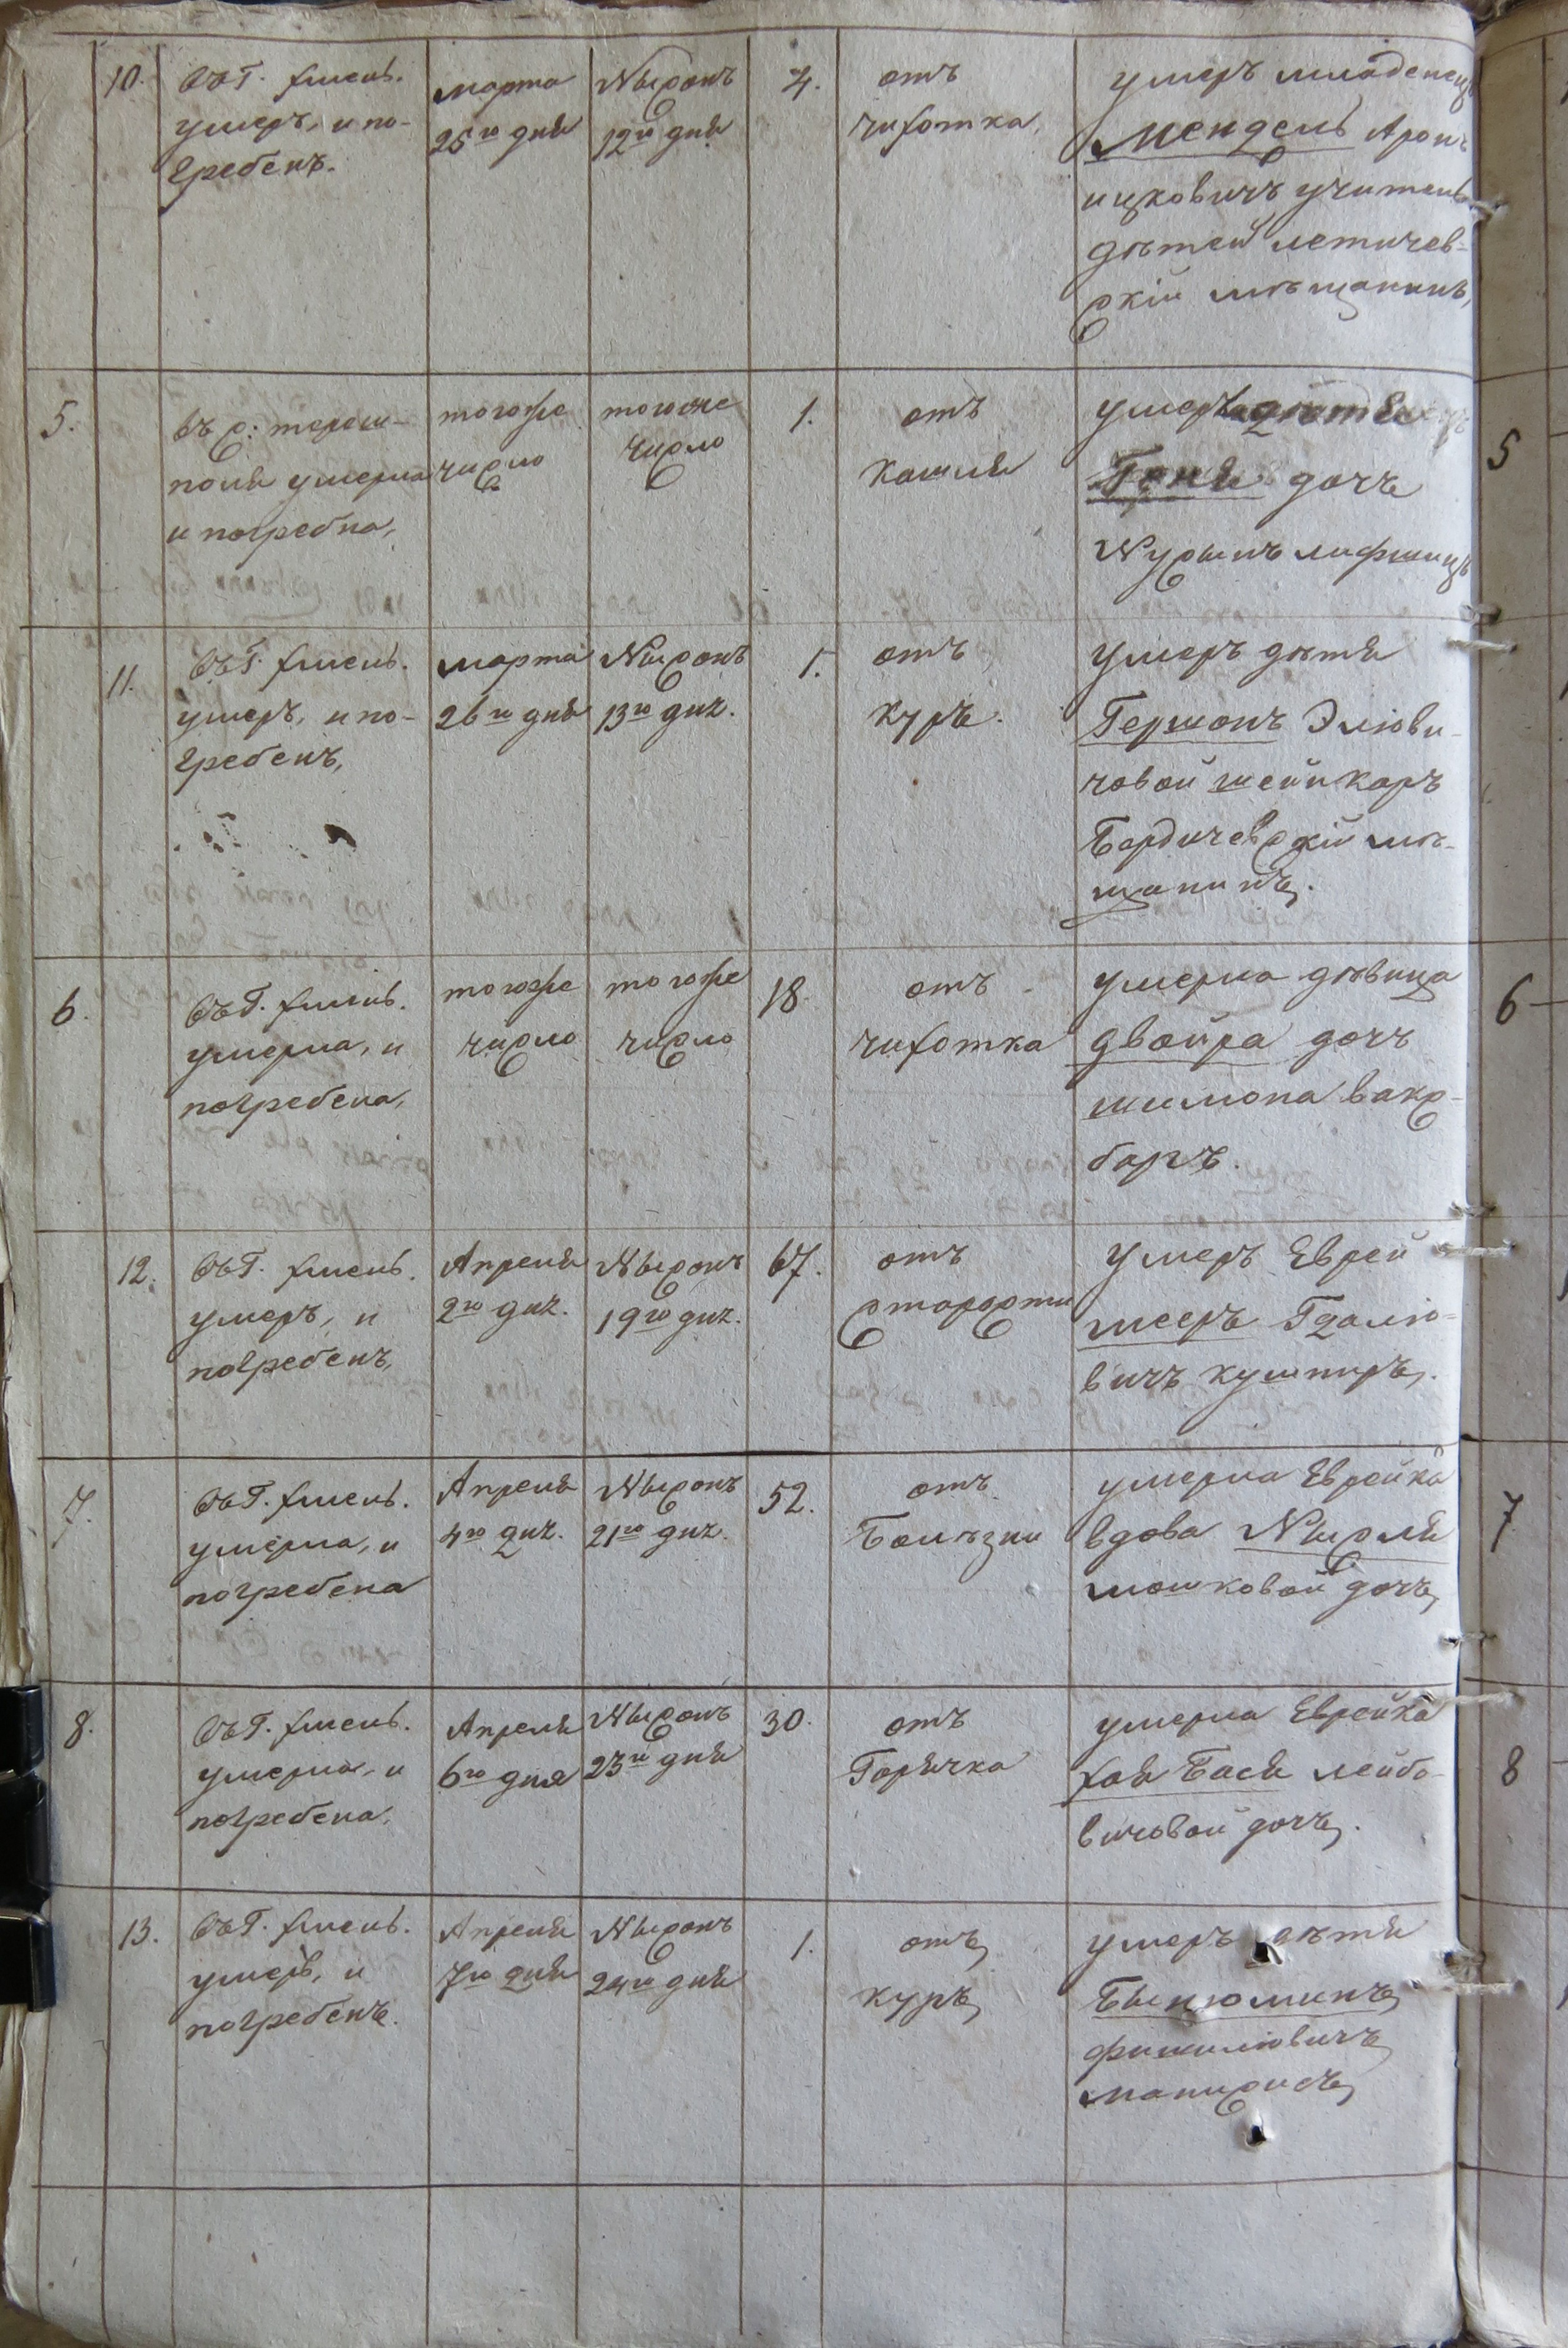 10.
Въ Г. Хмель.
умеръ, и по-
гребенъ.
марта
25го дня
Нысонъ
12го дня
4.
отъ
чихотка,
умеръ младенецъ
Мендель Аронъ
ицковичъ учитель
дѣтей летичев-
скій мѣщанинъ,
5.
въ с: тереш-
поля умерла
и погребна,
тогоже
число
тогоже
число
1.
отъ
кашля
умерла
дочь
Нусынъ лифшицъ
5
11.
Въ Г. Хмель.
умеръ, и по-
гребенъ,
марта
26го дня
Нысонъ
13го дня.
1.
отъ
куръ.
умеръ дѣтя
Гершонъ Элюви-
човой шейнкаръ
Бердичевскій мѣ-
щанинъ.
6.
Въ Г. Хмель.
умерла, и
погребена,
тогоже
число
тогоже
число
18.
отъ
чихотка
умерла дѣвица
двойра дочъ
шимона вакс-
баръ.
6
12.
Въ Г. Хмель.
умеръ, и
погребенъ,
Апреля
2го дня.
Нысонъ
19го дня.
67.
отъ
старости
умеръ Еврей
мееръ Гдалю-
вичъ кушниръ.
7.
Въ Г. Хмель.
умерла, и
погребена
Апреля
4го дня.
Нысонъ
21го дня.
52.
отъ
Болѣзни
умерла Еврейка
вдова Нысля
мошковой дочъ
7
8.
Въ Г. Хмель.
умерла, и
погребена,
Апреля
6го дня
Нысонъ
23го дня
30.
отъ
Горячка
умерла Еврейка
Хая Бася лейбо-
вичовой дочъ.
8
13.
Въ Г. Хмель.
умеръ, и
погребенъ.
Апреля
7го дня
Нысонъ
24го дня
1.
отъ
куръ
умеръ дѣтя
Бынюминъ
фишлювичъ